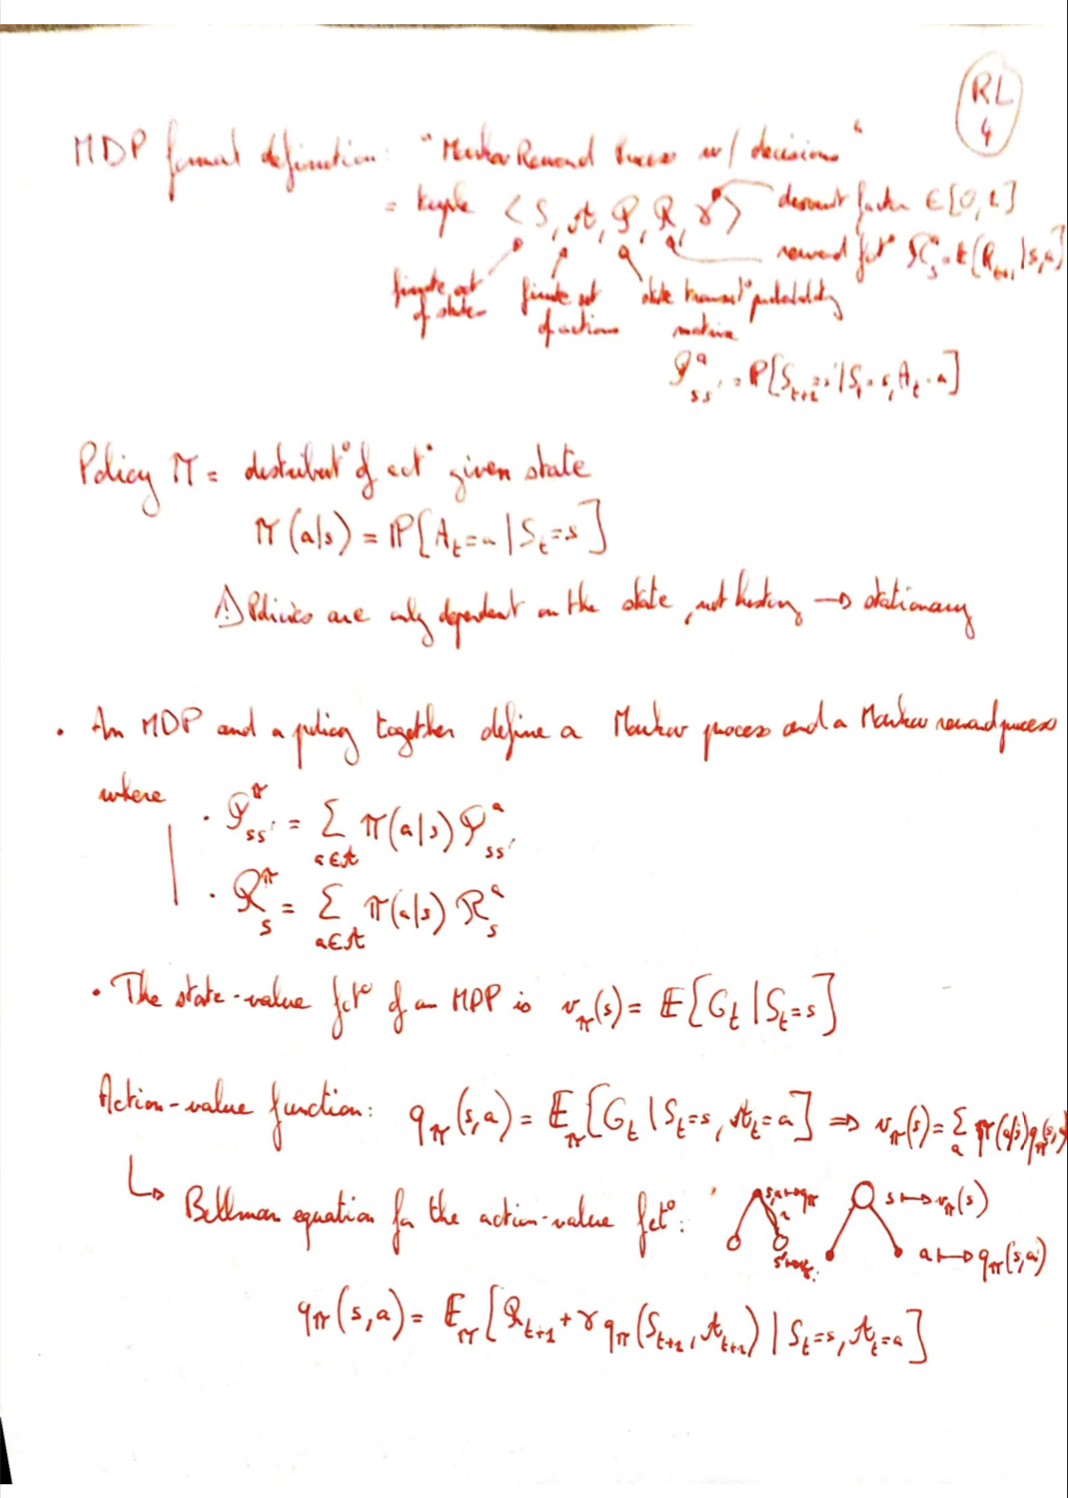 RL
4
MDP formal definition: "Markov Reward Process w/ decisions"
= tuple <S, A, P, R, γ> discount factor ∈ [0, 1]
reward fct° R_s^a = E[R_{t+1} | s, a]
finite set of states
finite set of actions
state transit° probability matrix
P_{ss'}^a = P[S_{t+1} = s' | S_t = s, A_t = a]
Policy π = distribut° of act° given state
π(a|s) = P[A_t = a | S_t = s]
⚠ Policies are only dependent on the state, not history → stationary
• An MDP and a policy together define a Markov process and a Markov reward process
where
• P_{ss'}^π = Σ_{a∈A} π(a|s) P_{ss'}^a
• R_s^π = Σ_{a∈A} π(a|s) R_s^a
• The state-value fct° of an MDP is v_π(s) = E[G_t | S_t = s]
Action-value function: q_π(s,a) = E_π[G_t | S_t = s, A_t = a] ⇒ v_π(s) = Σ_a π(a|s) q_π(s,a)
↳ Bellman equation for the action-value fct°:
s,a ↦ q_π
r
s ↦ v_π(s)
a ↦ q_π(s,a)
q_π(s,a) = E_π[R_{t+1} + γ q_π(S_{t+1}, A_{t+1}) | S_t = s, A_t = a]